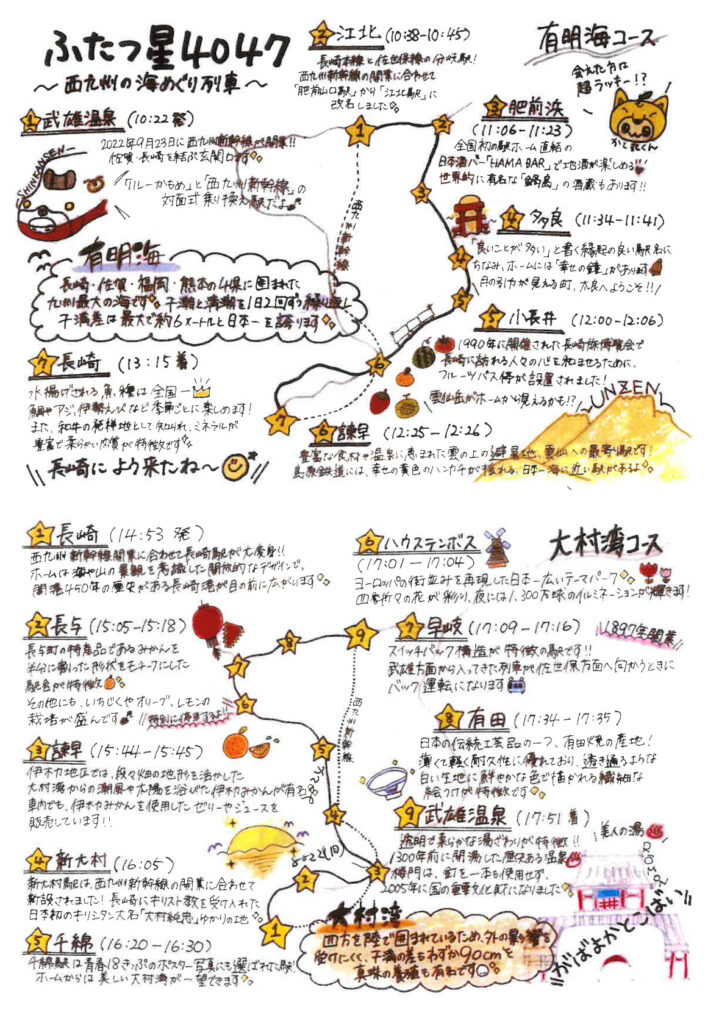 ふたつ星4047
～西九州の海めぐり列車～
有明海コース
会えた方は
超ラッキー!?
1 武雄温泉 (10:22発)
2022年9月23日に西九州新幹線が開業!!
佐賀・長崎を結ぶ玄関口です
「リレーかもめ」と「西九州新幹線」の
対面式乗り換え駅だよ
SHINKANSEN
2 江北 (10:38-10:45)
長崎本線と佐世保線の分岐駅!
西九州新幹線の開業に合わせて
「肥前山口駅」から「江北駅」に
改名しました
3 肥前浜
(11:06-11:23)
全国初の駅ホーム直結の
日本酒バー「HAMA BAR」で地酒が楽しめる
世界的に有名な「鍋島」の酒蔵もあります!!
4 多良 (11:34-11:41)
「良いことが多い」と書く縁起の良い駅名に
ちなみ、ホームには"幸せの鐘"があります
月の引力が見える町、太良へようこそ!!
5 小長井 (12:00-12:06)
1990年に開催された長崎旅博覧会で
長崎に訪れる人々の心を和ませるために、
フルーツバス停が設置されました!
雲仙岳がホームから見えるかも!?
UNZEN
6 諫早 (12:25-12:26)
豊富な食材や温泉に恵まれた雲の上の避暑地、雲仙への最寄り駅です!
島原鉄道には、幸せの黄色のハンカチが揺れる、日本一海に近い駅があるよ
7 長崎 (13:15着)
水揚げされる魚種は全国一
鯛やアジ、伊勢えびなど季節ごとに楽しめます!
また、和牛の発祥地として知られ、ミネラルが
豊富で柔らかい肉質が特徴です
長崎によう来たね～
有明海
長崎・佐賀・福岡・熊本の4県に囲まれた
九州最大の海です 干潮と満潮を1日2回ずつ繰り返し
干満差は最大で約6メートルと日本一を誇ります
西九州新幹線
1
2
3
4
5
6
7
大村湾コース
1 長崎 (14:53 発)
西九州新幹線開業に合わせて長崎駅が大変身!!
ホームは海や山の景観を意識した開放的なデザインで、
開港450年の歴史がある長崎港が目の前に広がります
2 長与 (15:05-15:18)
長与町の特産品であるみかんを
半分に割った形状をモチーフにした
駅舎が特徴
その他にも、いちじくやオリーブ、レモンの
栽培が盛んです
特別に停車するよ!!
3 諫早 (15:44-15:45)
伊木力地区では、段々畑の地形を活かした
大村湾からの潮風や太陽を浴びた伊木力みかんが有名
車内でも、伊木力みかんを使用したゼリーやジュースを
販売しています!!
4 新大村 (16:05)
新大村駅は、西九州新幹線の開業に合わせて
新設されました! 長崎にキリスト教を受け入れた
日本初のキリシタン大名「大村純忠」ゆかりの地
5 千綿 (16:20-16:30)
千綿駅は青春18きっぷのポスター写真にも選ばれた駅!
ホームからは美しい大村湾が一望できます
6 ハウステンボス
(17:01-17:04)
ヨーロッパの街並みを再現した日本一広いテーマパーク
四季折々の花が彩り、夜には1,300万球のイルミネーションが輝きます!
7 早岐 (17:09-17:16)
1897年開業
スイッチバック構造が特徴の駅です!!
武雄方面から入ってきた列車が佐世保方面へ向かうときに
バック運転になります
8 有田 (17:34-17:35)
日本の伝統工芸品の一つ、有田焼の産地!
薄くて軽く耐久性に優れており、透き通るような
白い生地に鮮やかな色で描かれる繊細な
絵つけが特徴です
9 武雄温泉 (17:51着)
透明で柔らかな湯ざわりが特徴!!
美人の湯
1300年前に開湯した歴史ある温泉
楼門は、釘を一本も使用せず、
2005年に国の重要文化財になりました
大村湾
四方を陸で囲まれているため、外の影響を
受けにくく、干満の差もわずか90cmと
真珠の養殖も有名です
がばよかとこばい
西九州新幹線
1
2
3
4
5
6
7
8
9